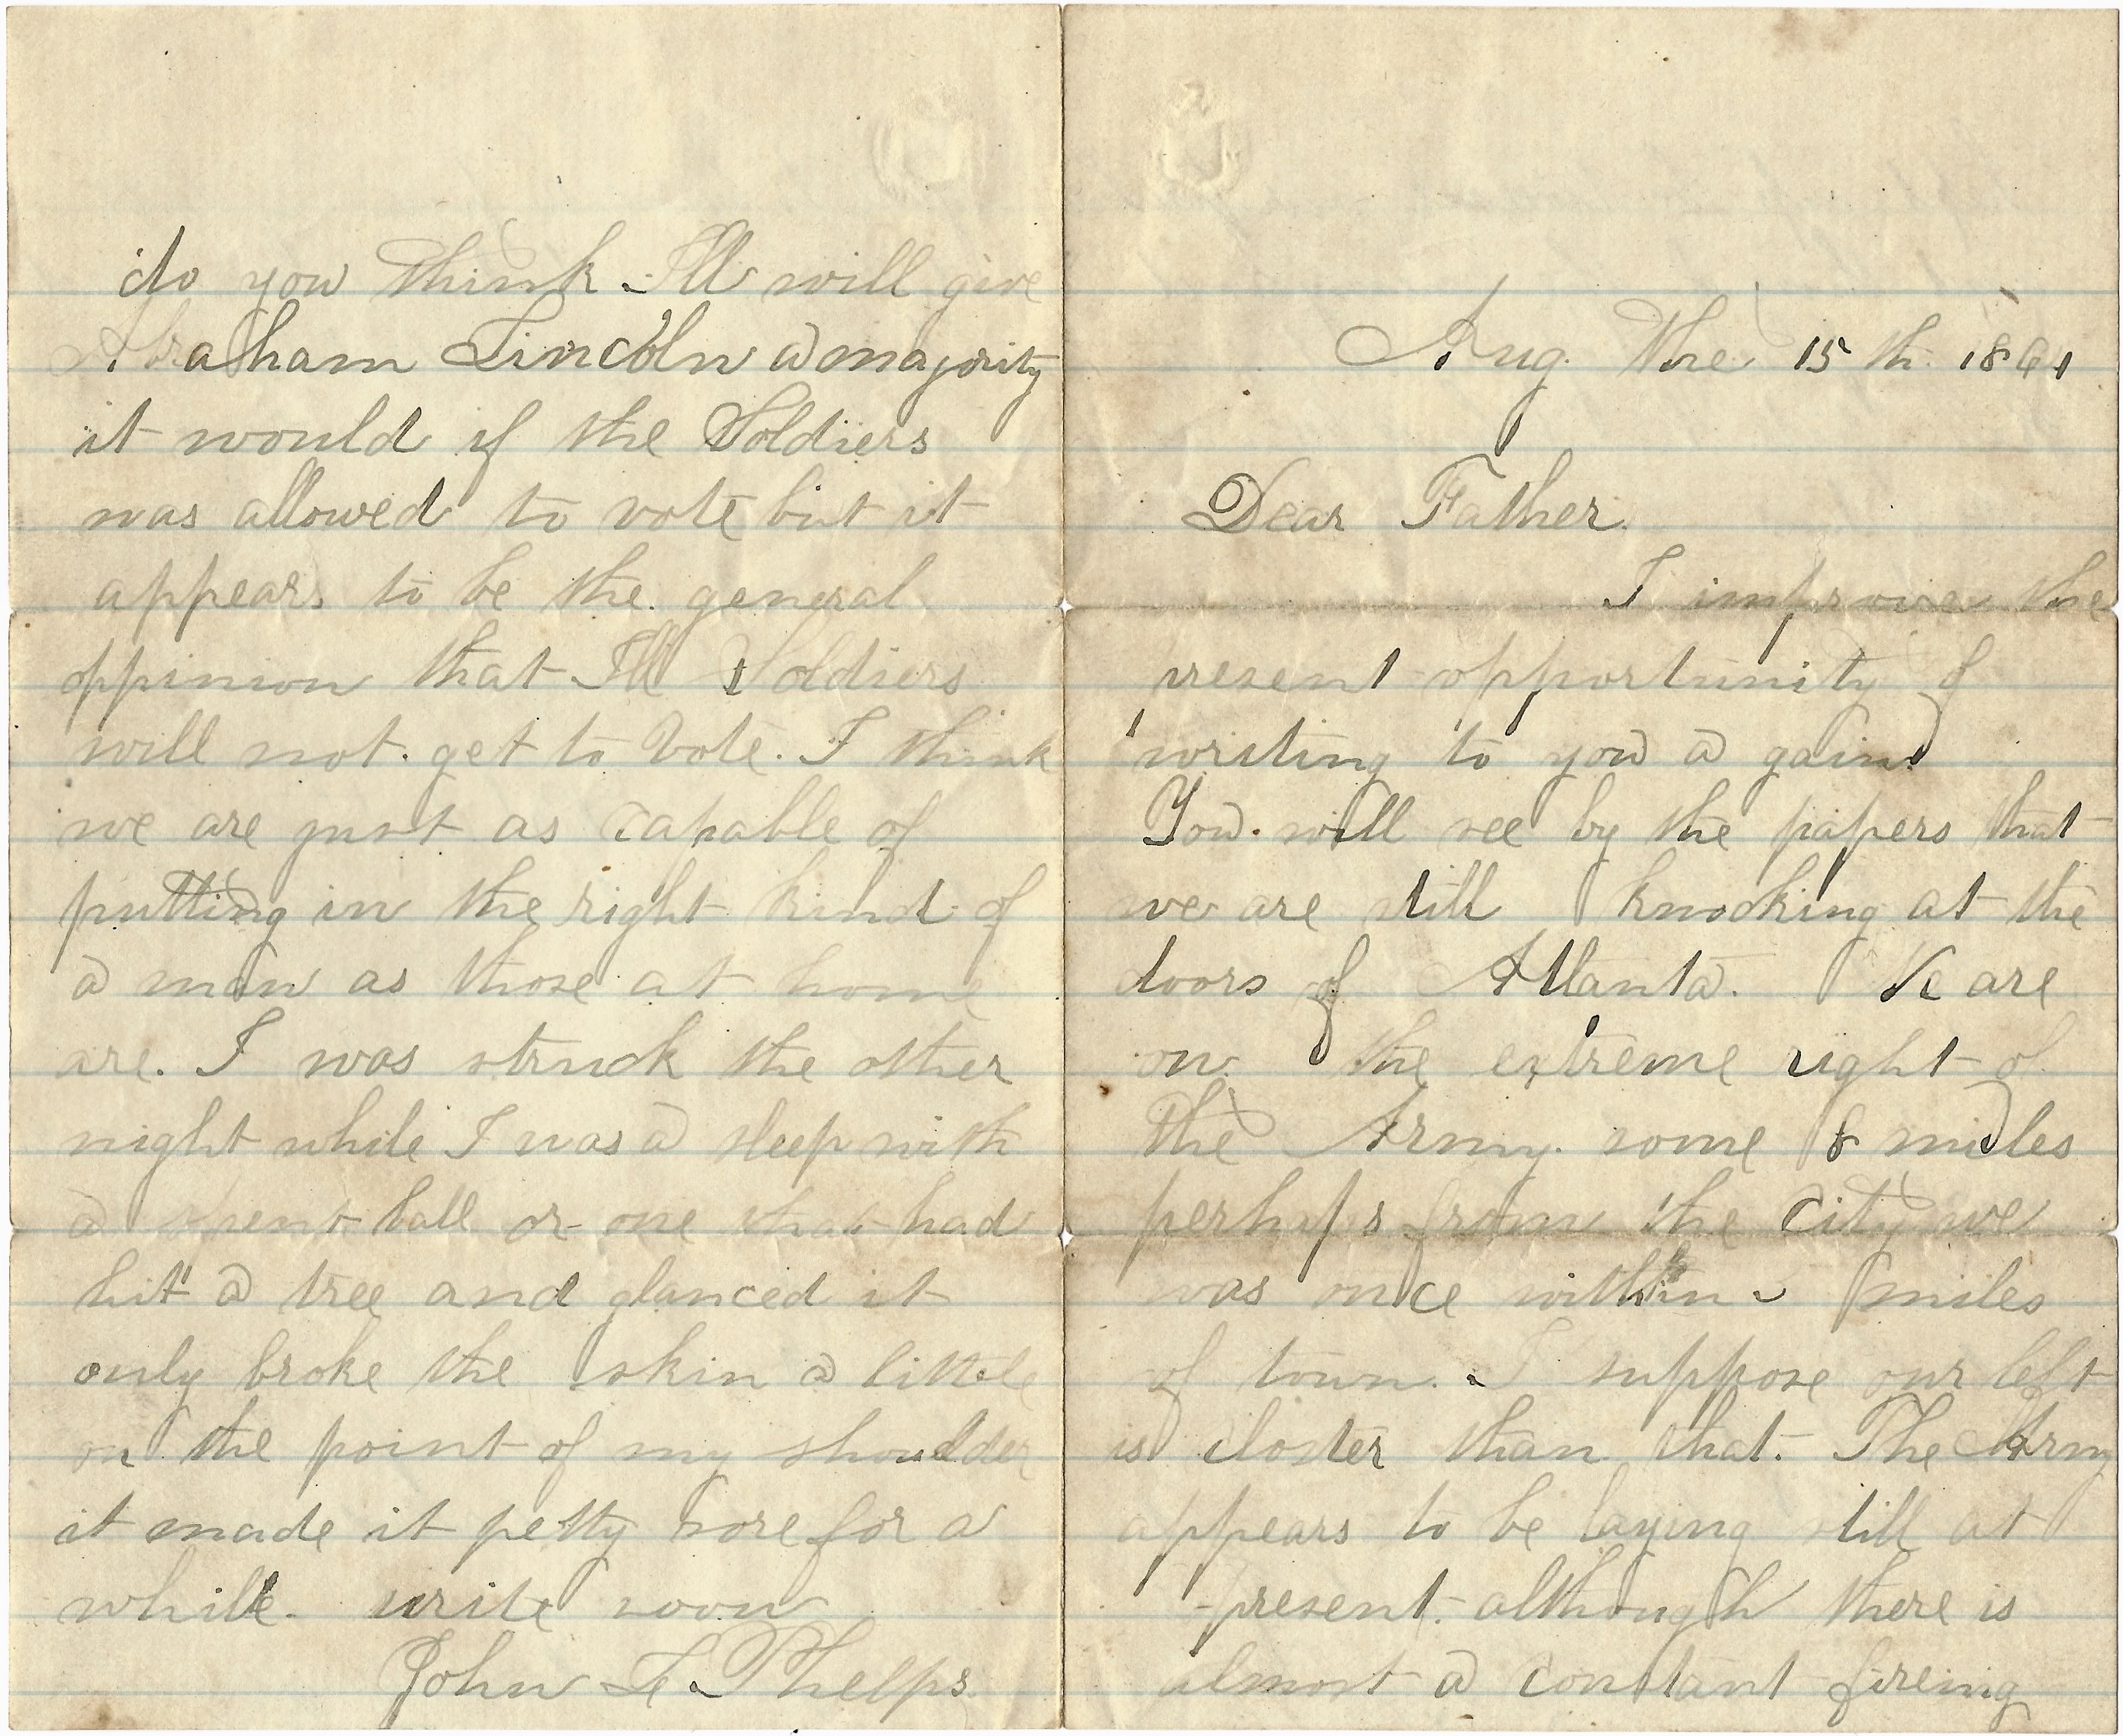 Aug. the 15 th. 1864
Dear Father.
I improve the
present opportunity of
writing to you a gain
You will see by the papers that
we are still knocking at the
doors of Atlanta. We are
on the extreme right of
the Army. some 8 miles
perhaps from the City we
was once within 2 miles
of town. I suppose our left
is closter than that. The Army
appears to be laying still at
present. although there is
almost a constant fireing
do you think Ill will give
Abraham Lincoln a majority
it would if the Soldiers
was allowed to vote but it
appears to be the general
oppinion that Ill Soldiers
will not get to vote. I think
we are just as capable of
putting in the right kind of
a man as those at home
are. I was struck the other
night while I was a sleep with
a spent ball or one that had
hit a tree and glanced it
only broke the skin a little
on the point of my shoulder
it made it petty sore for a
while. write soon
John L. Phelps